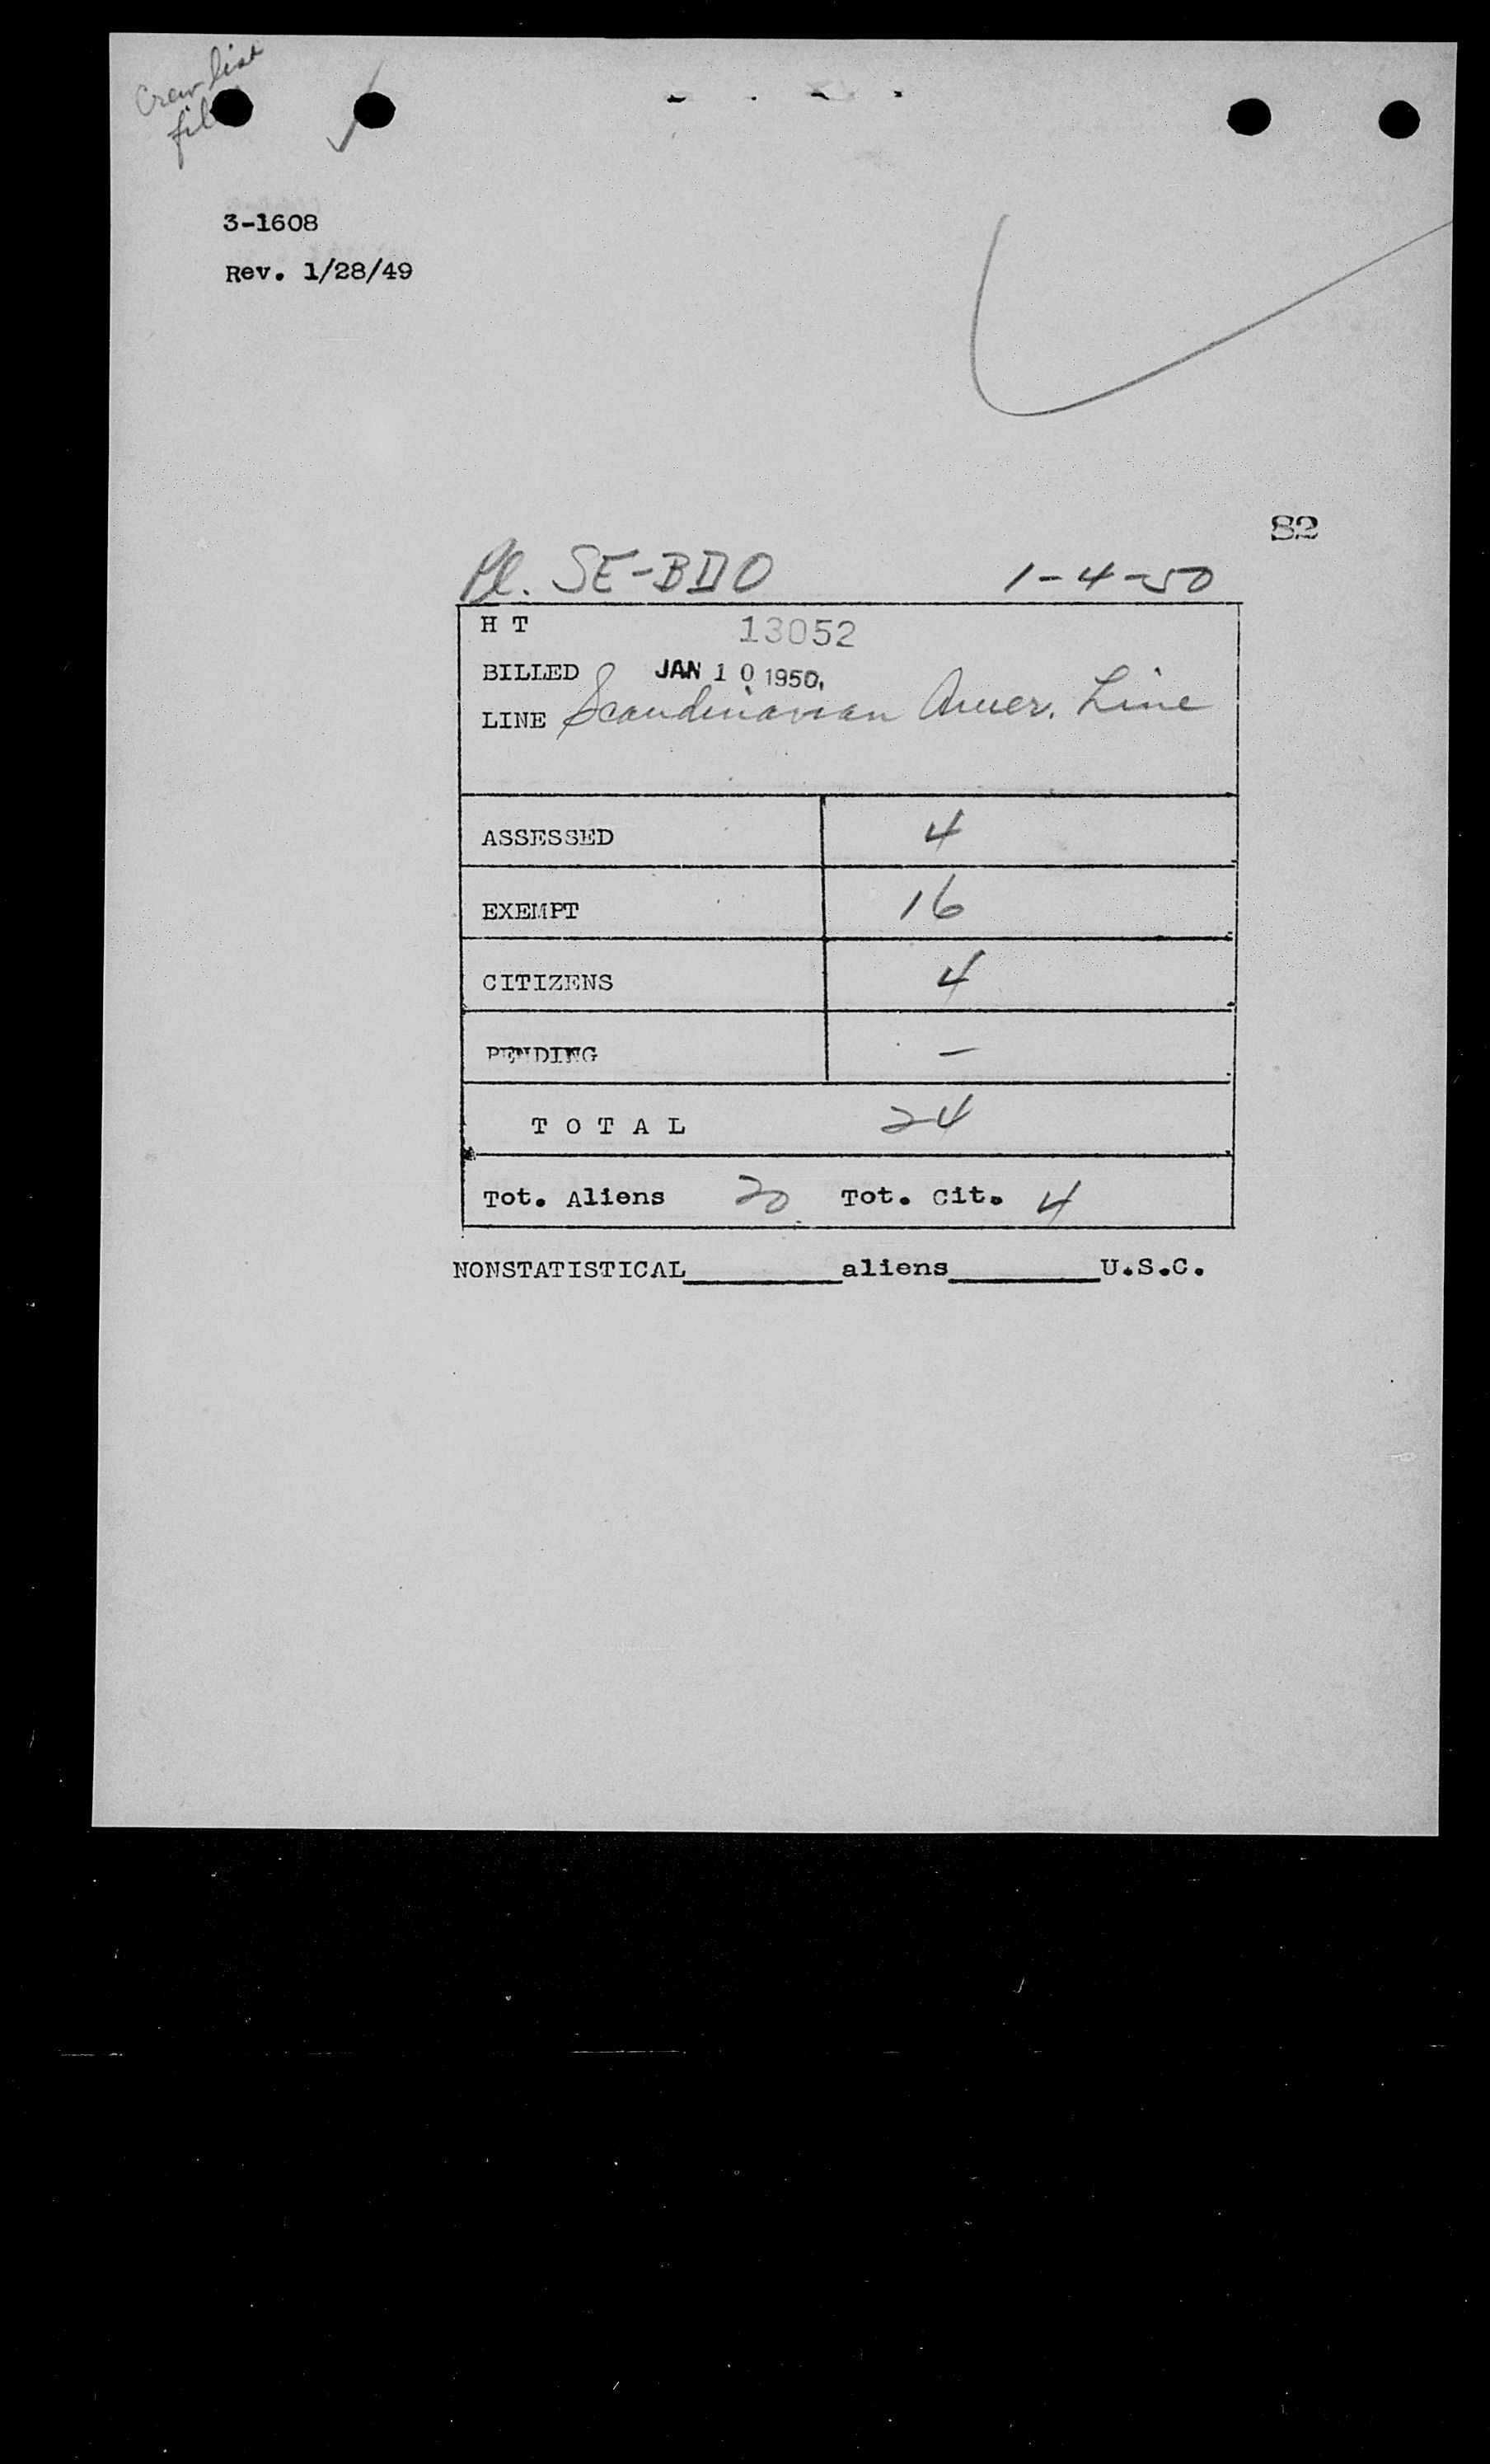 Crew list
file
3-1608
Rev. 1/28/49
82
Pl. SE-BDO 1-4-50
H T 13052
BILLED JAN 10 1950
LINE Scandinavian Amer. Line
ASSESSED 4
EXEMPT 16
CITIZENS 4
PENDING -
TOTAL 24
Tot. Aliens 20 Tot. Cit. 4
NONSTATISTICAL________aliens________U.S.C.